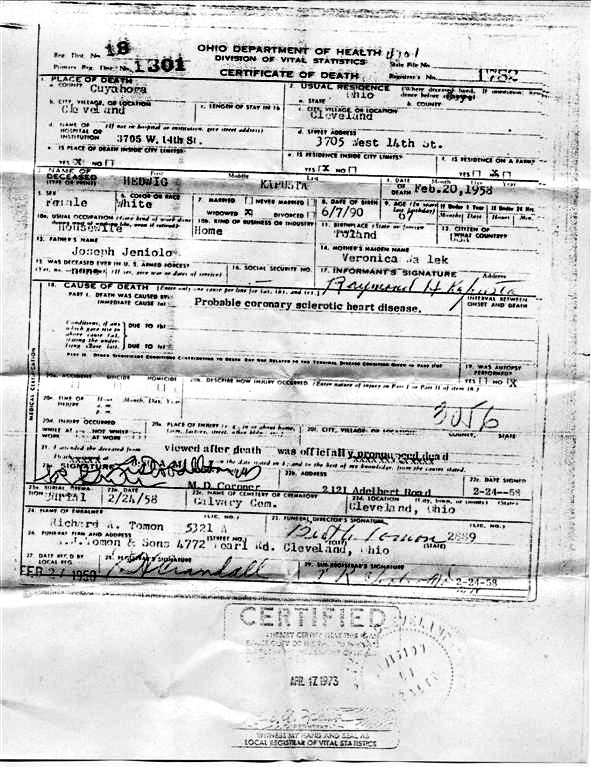 Reg. Dist. No. 18
OHIO DEPARTMENT OF HEALTH
State File No.
DIVISION OF VITAL STATISTICS
Primary Reg. Dist. No. 1301
CERTIFICATE OF DEATH
Registrar's No. 1782
1. PLACE OF DEATH
2. USUAL RESIDENCE (Where deceased lived.
a. COUNTY Cuyahoga
a. STATE Ohio
b. COUNTY
b. CITY, VILLAGE, OR LOCATION
c. LENGTH OF STAY IN 1b
c. CITY, VILLAGE, OR LOCATION
Cleveland
Cleveland
d. NAME OF HOSPITAL OR INSTITUTION (If not in hospital or institution, give street address)
d. STREET ADDRESS
3705 W. 14th St.
3705 West 14th St.
e. IS PLACE OF DEATH INSIDE CITY LIMITS?
e. IS RESIDENCE INSIDE CITY LIMITS?
f. IS RESIDENCE ON A FARM?
YES X NO
YES X NO
YES NO X
3. NAME OF DECEASED (TYPE OR PRINT)
First Middle Last
HEDWIG KAPUSTA
4. DATE OF DEATH Feb.20,1958
5. SEX
6. COLOR OR RACE
7. MARRIED NEVER MARRIED
8. DATE OF BIRTH
9. AGE
Female White
WIDOWED X DIVORCED
6/7/90 67
10a. USUAL OCCUPATION
10b. KIND OF BUSINESS OR INDUSTRY
11. BIRTHPLACE (State or foreign
12. CITIZEN OF WHAT COUNTRY?
Housewife Home Poland
13. FATHER'S NAME
14. MOTHER'S MAIDEN NAME
Joseph Jeniolow
Veronica
15. WAS DECEASED EVER IN U. S. ARMED FORCES?
16. SOCIAL SECURITY NO.
17. INFORMANT'S SIGNATURE Address
Raymond H Kapusta
18. CAUSE OF DEATH (Enter only one cause per line for (a), (b), and (c).
INTERVAL BETWEEN ONSET AND DEATH
PART I. DEATH WAS CAUSED BY:
IMMEDIATE CAUSE (a)
Probable coronary sclerotic heart disease.
Conditions, if any, which gave rise to above cause (a), stating the underlying cause last.
DUE TO (b)
DUE TO (c)
PART II. OTHER SIGNIFICANT CONDITIONS CONTRIBUTING TO DEATH BUT NOT RELATED TO THE TERMINAL DISEASE CONDITION GIVEN IN PART I(a)
19. WAS AUTOPSY PERFORMED?
YES NO X
MEDICAL CERTIFICATION
20a. ACCIDENT SUICIDE HOMICIDE
20b. DESCRIBE HOW INJURY OCCURRED. (Enter nature of injury in Part I or Part II of item 18.)
20c. TIME OF INJURY
Hour Month, Day, Year
a. m.
p. m.
3056
20d. INJURY OCCURRED
20e. PLACE OF INJURY
20f. CITY, VILLAGE, OR LOCATION COUNTY, STATE
WHILE AT WORK NOT WHILE AT WORK
21. I attended the deceased from
viewed after death was officially pronounced dead
on the date stated above; and to the best of my knowledge, from the causes stated.
SIGNATURE
22b. ADDRESS
22c. DATE SIGNED
M.D. Coroner 2121 Adelbert Road 2-24-58
23b. DATE
23c. NAME OF CEMETERY OR CREMATORY
23d. LOCATION
Burial 2/24/58 Calvary Cem. Cleveland, Ohio
24. NAME OF EMBALMER (LIC. NO.)
25. FUNERAL DIRECTOR'S SIGNATURE (LIC. NO.)
Richard A. Tomon 5321 A
Tomon 2889
26. FUNERAL FIRM AND ADDRESS (STATE)
Tomon & Sons 4772 Pearl Rd. Cleveland, Ohio
27. DATE REC'D BY LOCAL REG.
28. REGISTRAR'S SIGNATURE
29. SUB-REGISTRAR'S SIGNATURE
2-24-58
CERTIFIED
I HEREBY CERTIFY
APR 17 1973
WITNESS MY HAND AND SEAL AS
LOCAL REGISTRAR OF VITAL STATISTICS